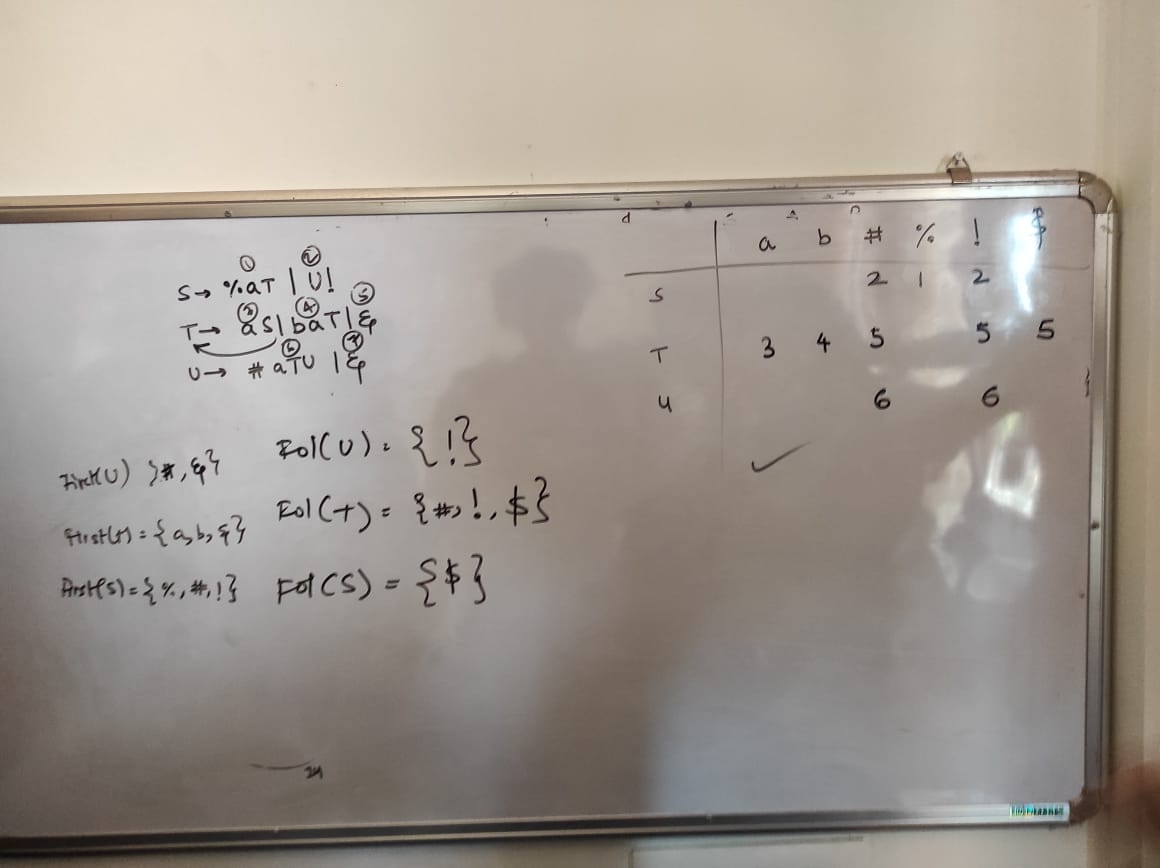 ① ②
S→ %aT | U!
③ ④ ⑤
T→ aS| baT|ε
⑥ ⑦
U→ # aTU | ε
First(U) }#, ε}
First(T) = {a, b, ε}
First(S) = {%, #, !}
Fol(U) = {!}
Fol(T) = {#, !, $}
Fol(S) = {$}
a b # % ! $
S 2 1 2
T 3 4 5 5 5
U 6 6